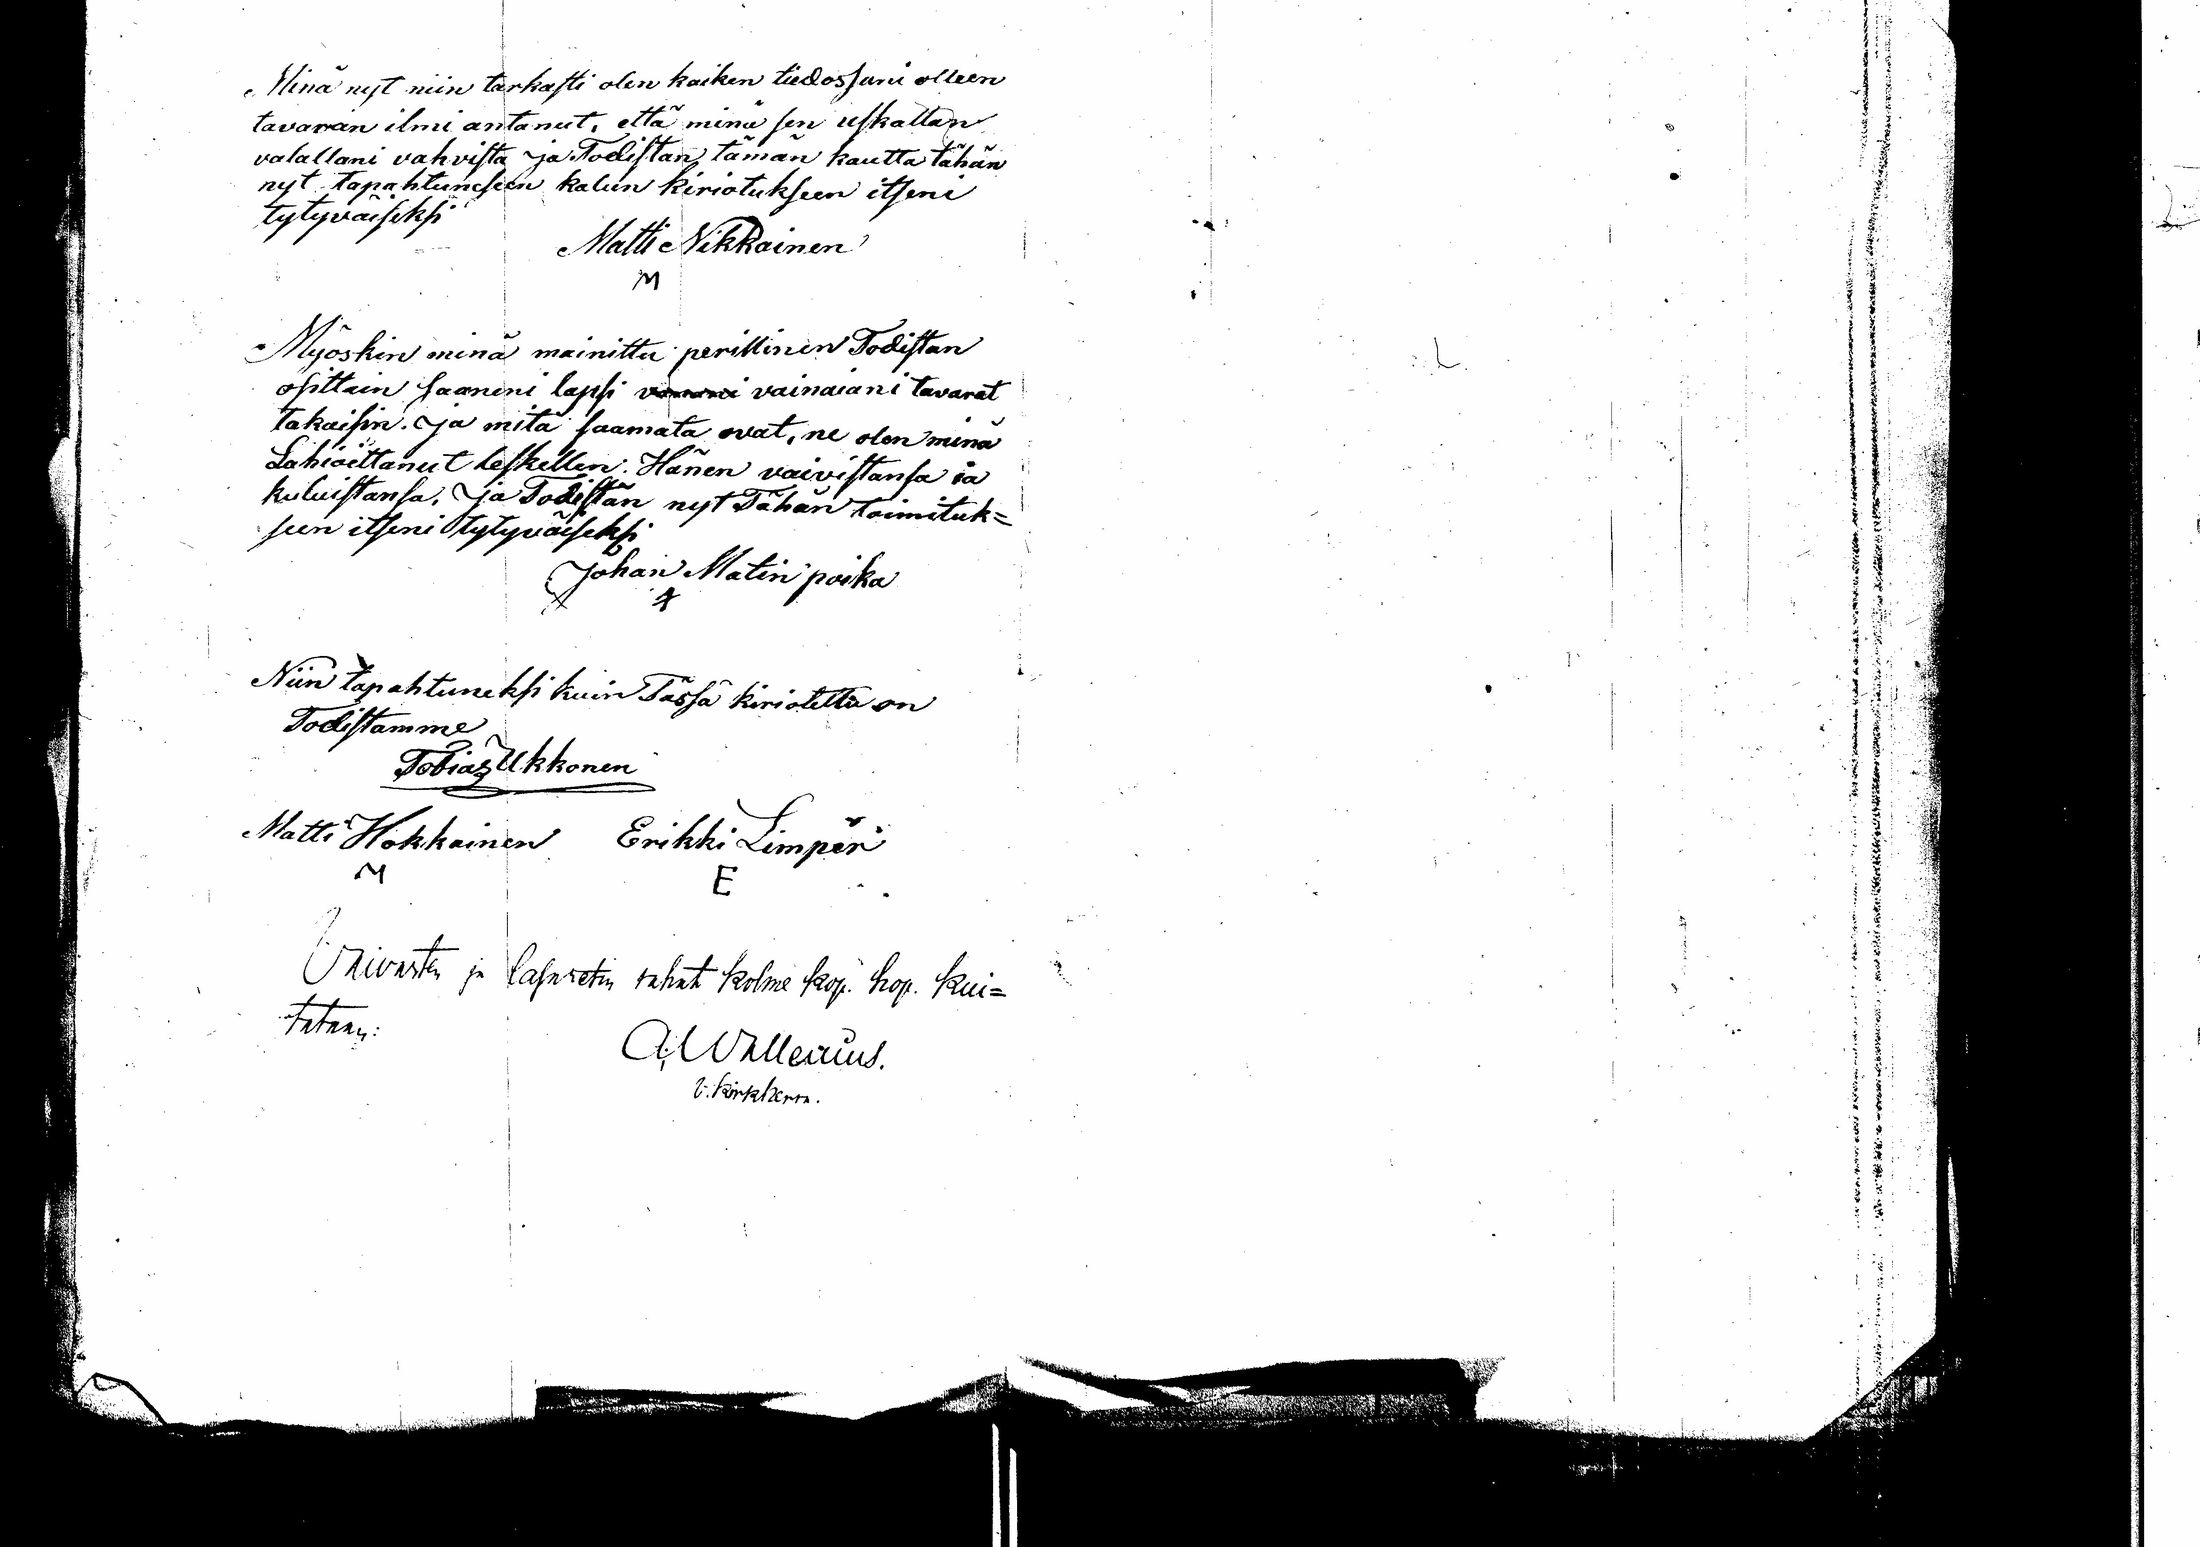 Minä nyt niin tarkasti olen kaiken tiedossani olleen
tavaran ilmi antanut, että minä sen uskallan
valallani vahvista ja Todistan tämän kautta tähän
nyt tapahtuneseen kalun kiriotukseen itseni
tytyväiseksi
Matti Nikkainen
M
Myöskin minä mainittu perillinen Todistan
osittain saaneni lapsi vainaiani tavarat
takaisin. ja mitä saamata ovat, ne olen minä
Lahioittanut leskellen. Hänen vaivistansa ia
kuluistansa, ja Todistan nyt Tähän toimituk=
seen itseni tytyväiseksi
Johan Matin poika
Niin tapahtuneksi kuin Tässä kiriotettu on
Todistamme
Tobias Ukkonen
Matti Hokkainen Erikki Limpär
M E
Vaivasten ja lasaretin rahat kolme kop. hop. kui=
tataan:
A. Wallerius.
v. kirkherra.